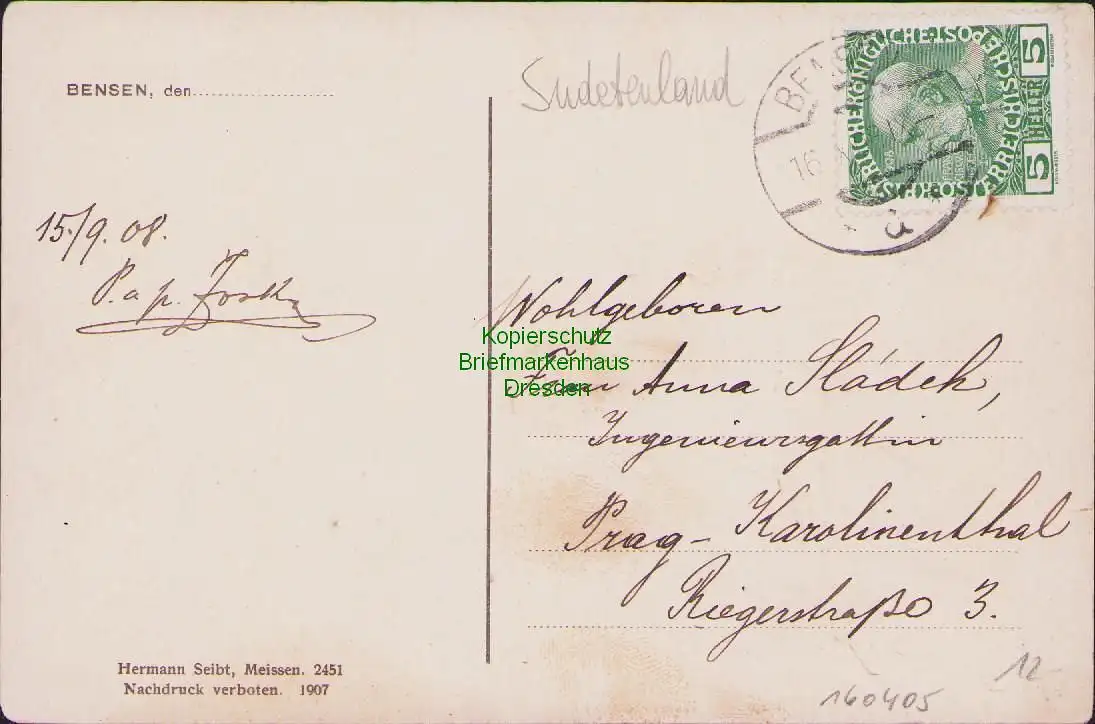 BENSEN, den
Sudetenland
5
5
HELLER
15/9. 08.
P. a p.
Wohlgeboren
Kopierschutz
Briefmarkenhaus
Dresden
Frau Anna Sládek,
Ingenieursgattin
Prag - Karolinenthal
Riegerstraße 3.
Hermann Seibt, Meissen. 2451
Nachdruck verboten. 1907
12
160405